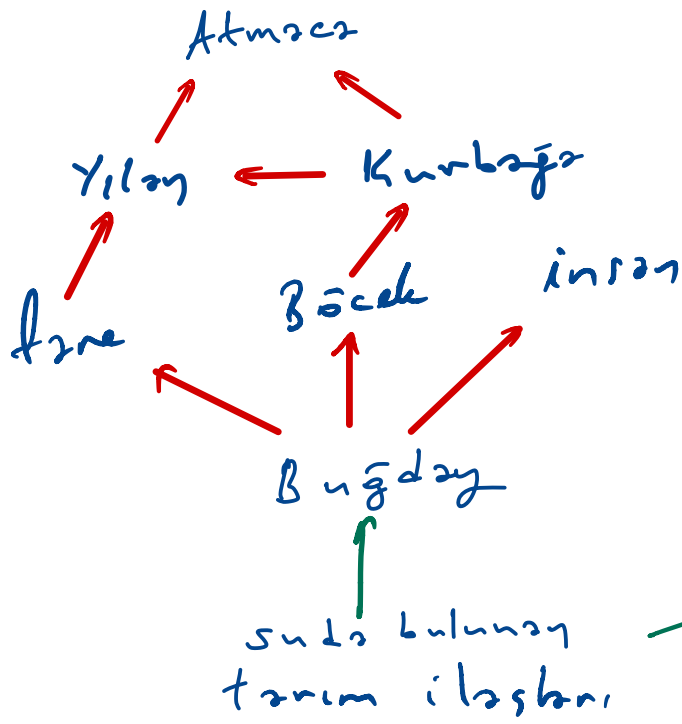 Atmaca
Yılan
Kurbağa
fare
Böcek
insan
Buğday
suda bulunan
tarım ilaçları